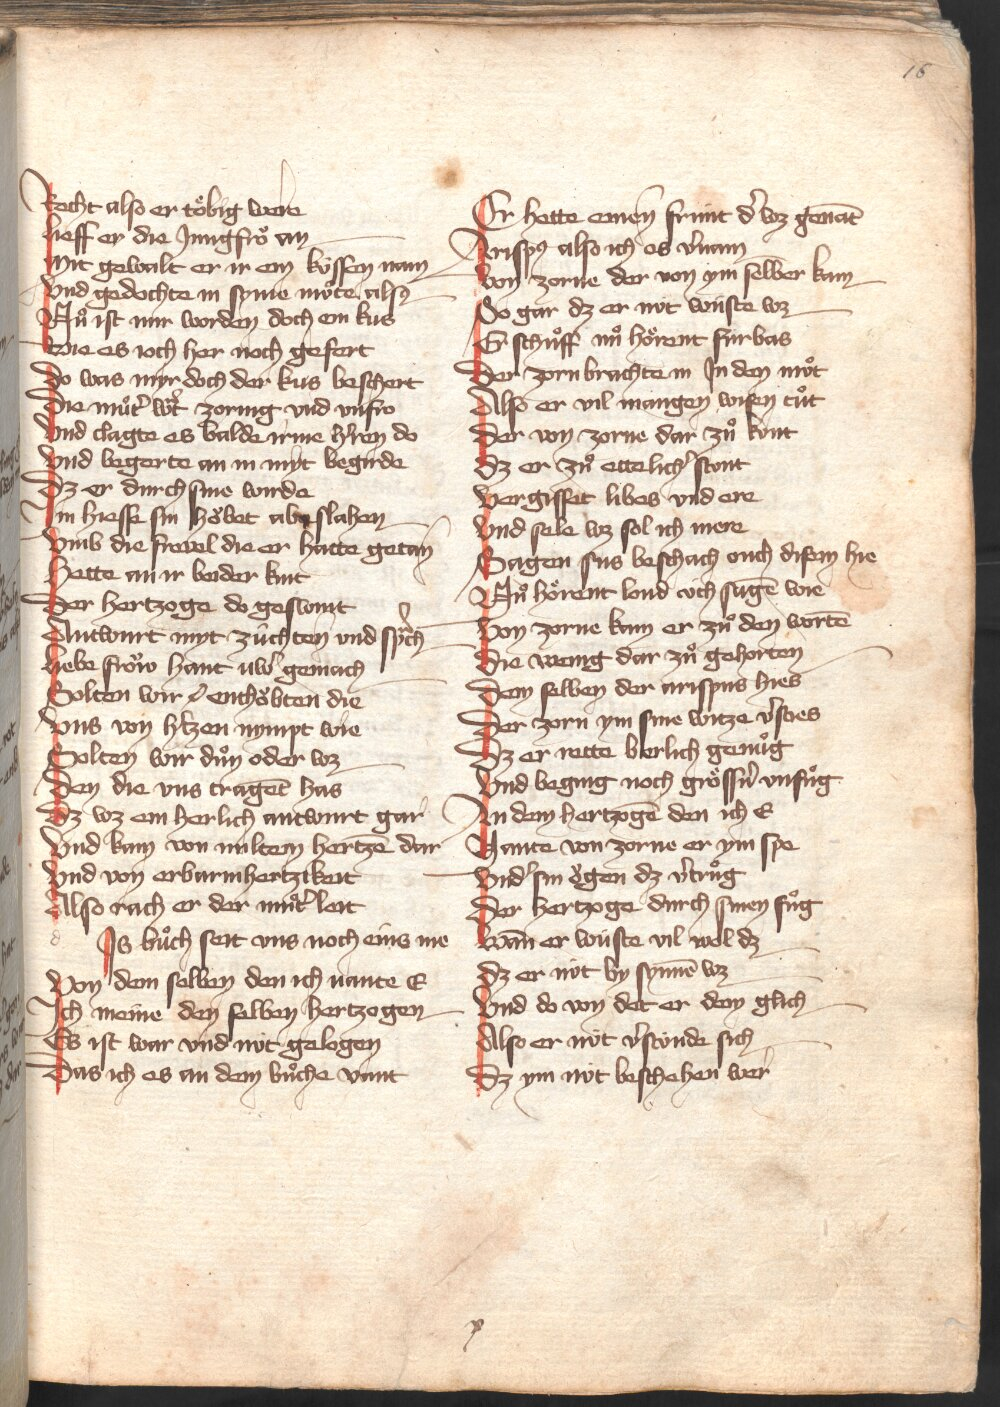 16
Recht also er tôbig were
lieff er die Jungfrŏ an
mit gewalt er ir ein kússen nam
Vnd gedochte in syme můte alsꝰ
Nů ist mir worden doch ein kus
Wie es ioch her noch gefert
Do was myr doch der kus beschert
Die můt' wʼt zornig vnd vnfro
Vnd clagte es balde irme h'ren do
Vnd begerte an in myt begirde
Dz er durch sine wirde
Im hiesse sin hŏbet abe slahen
Vmb die frevel die er hatte getan
Hette an ir beider kint
Der hertzoge do geswint
Antwurt myt zúchten vnd sprch
liebe frŏw hant uw' gemach
Solten wir enthŏbten die
Vns von h'tzen nympt wie
Solten wir důn oder wz
Den die vns tragēt has
Dz wz ein herlich antwurt gar
Vnd kam von miltem hertzē dar
Vnd von erbarmhertzikeit
Also rach er der můt' leit
d Is bůch seit vns noch eins me
Von dem selben den ich nante E
Ich meine den selben hertzogen
Es ist war vnd nút gelogen
Das ich es an dem bůche vant
Er hette einen frúnt d' wz genāt
Arispꝰ also ich es v'nam
Von zorne der von ym selber kam
So gar dz er nút wúste wz
Er schůff nů hôrent fúrbas
Der zorn brachte in In den můt
Also er vil mangen wisen tůt
Der von zorne dar zů kunt
Dz er zů ettelich' stont
Vergisset libes vnd ere
Vnd sele wz sol ich mere
Sagen sus beschach ouch disem hie
Nů hôrent lond úch sagē wie
Von zorne kam er zů den wortē
Die wenig dar zů gehorten
Dem selben der arispus hies
Der zorn ym sine witze v'sties
Dz er rette berlich genůg
Vnd beging noch grôssū' vnfůg
An dem hertzogē den ich E
Nante von zorne er ym spe
Vnd' sin ŏgen dz v'trůg
Der hertzoge durch sinen fůg
Wān er wúste vil wol dz
Dz er nút by synnē wz
Vnd do von det er dem glich
Also er nút v'stúnde sich
Dz ym nút beschehen wer'